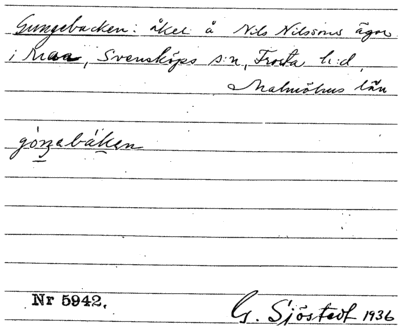 Gungebacken: åker å Nils Nilssons ägor
i Kraa, Svensköps s:n, Frosta h:d,
Malmöhus län
góŋabáken
Nr 5942.
G. Sjöstedt 1936